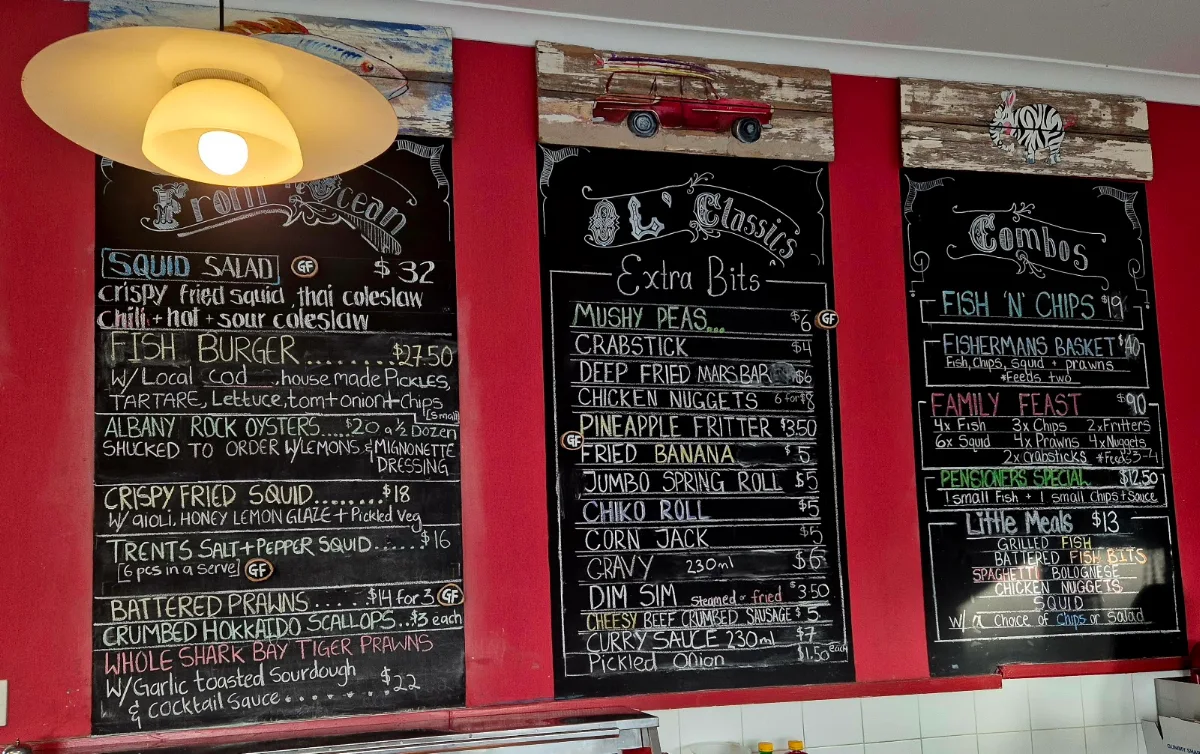 From the Ocean
SQUID SALAD GF $32
crispy fried squid, thai coleslaw
chili + hot + sour coleslaw
FISH BURGER........$27.50
W/Local cod, house made PICKLES,
TARTARE, Lettuce, tom+onion+chips
[small]
ALBANY ROCK OYSTERS....$20 a ½ Dozen
SHUCKED TO ORDER W/LEMONS & MIGNONETTE
DRESSING
CRISPY FRIED SQUID........$18
W/aioli, HONEY LEMON GLAZE + Pickled Veg
TRENTS SALT+PEPPER SQUID.....$16
[6 pcs in a serve] GF
BATTERED PRAWNS.....$14 for 3 GF
CRUMBED HOKKAIDO SCALLOPS..$3 each
WHOLE SHARK BAY TIGER PRAWNS
W/Garlic toasted Sourdough
& cocktail Sauce....... $22
OL' Classics
Extra Bits
MUSHY PEAS... $6 GF
CRABSTICK $4
DEEP FRIED MARS BAR $6
CHICKEN NUGGETS 6 for $8
PINEAPPLE FRITTER $3.50
GF FRIED BANANA $5
JUMBO SPRING ROLL $5
CHIKO ROLL $5
CORN JACK $5
GRAVY 230ml $6
DIM SIM steamed or fried $3.50
CHEESY BEEF CRUMBED SAUSAGE $5
CURRY SAUCE 230ml $7
Pickled Onion $1.50 each
Combos
FISH 'N' CHIPS $19
FISHERMANS BASKET $40
Fish, chips, squid + prawns
*Feeds two
FAMILY FEAST $90
4x Fish 3x Chips 2x Fritters
6x Squid 4x Prawns 4x Nuggets
2x Crabsticks *Feeds 3-4
PENSIONERS SPECIAL $12.50
1 small Fish + 1 small chips + Sauce
Little Meals $13
GRILLED FISH
BATTERED FISH BITS
SPAGHETTI BOLOGNESE
CHICKEN NUGGETS
SQUID
w/ a choice of chips or salad